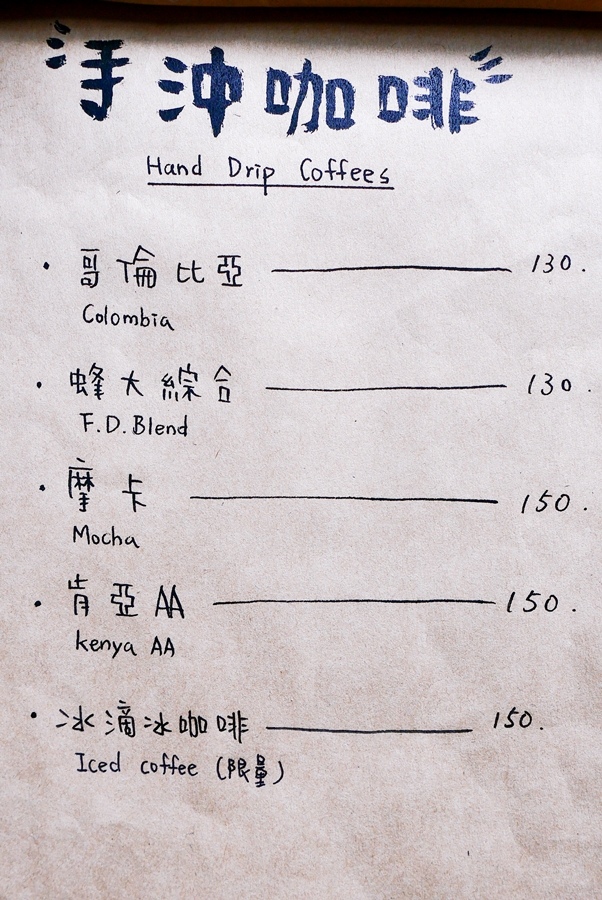 手沖咖啡
Hand Drip Coffees
· 哥倫比亞 —— 130.
Colombia
· 蜂大綜合 —— 130.
F.D.Blend
· 摩卡 —— 150.
Mocha
· 肯亞AA —— 150.
kenya AA
· 冰滴冰咖啡 —— 150.
Iced coffee (限量)